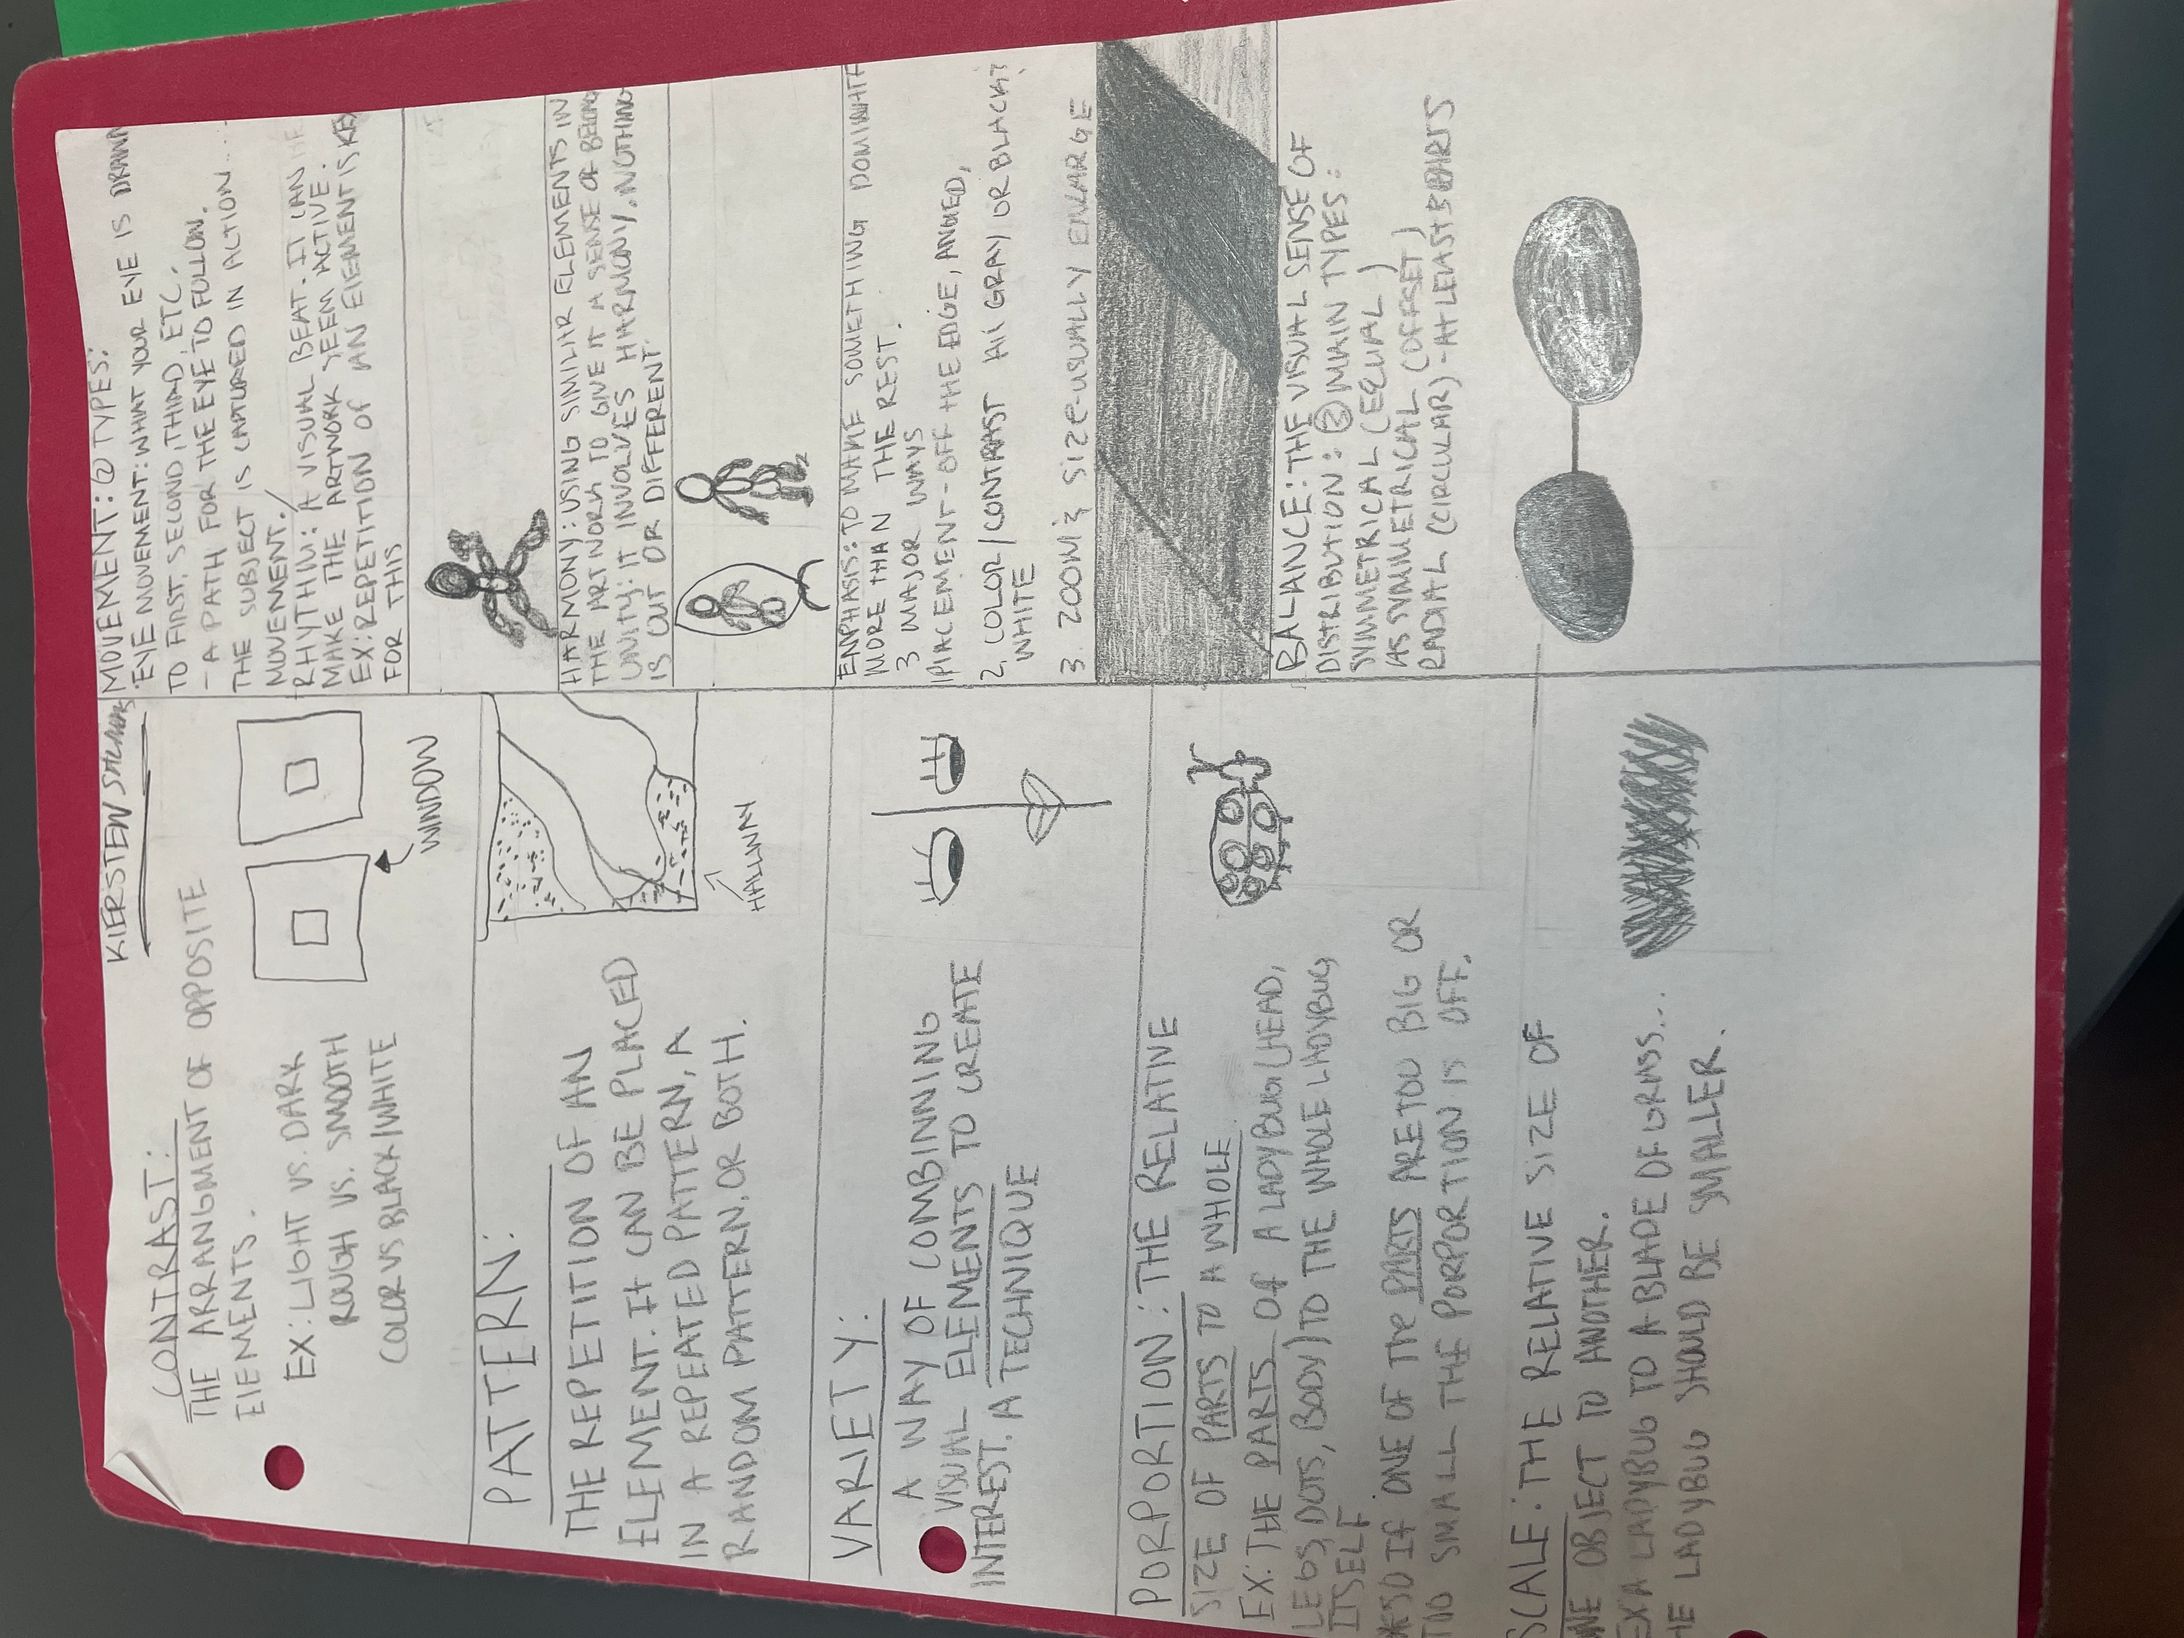 KIERSTEN
CONTRAST:
THE ARRANGMENT OF OPPOSITE
ElEMENTS.
EX: LIGHT VS. DARK
ROUGH VS. SMOOTH
COLOR VS BLACK/WHITE
WINDOW
PATTERN:
THE REPETITION OF AN
ELEMENT. It CAN BE PLACED
IN A REPEATED PATTERN, A
RANDOM PATTERN. OR BOTH.
HALLWAY
VARIETY:
A WAY OF COMBINNING
VISUAL ELEMENTS TO CREATE
INTEREST. A TECHNIQUE
PORPORTION: THE RELATIVE
SIZE OF PARTS TO A WHOLE
EX: THE PARTS OF A LADYBUG (HEAD,
LEGS, DOTS, BODY) TO THE WHOLE LADYBUG
ITSELF
SO IF ONE OF THE PARTS ARE TOO BIG OR
TOO SMALL THE PORPORTION IS OFF.
SCALE: THE RELATIVE SIZE OF
ONE OBJECT TO ANOTHER.
EX A LADYBUG TO A BLADE OF GRASS...
HE LADYBUG SHOULD BE SMALLER.
MOVEMENT: 2 TYPES:
EYE MOVEMENT: WHAT YOUR EYE IS DRAWN
TO FIRST, SECOND, THIRD, ETC.
- A PATH FOR THE EYE TO FOLLOW.
THE SUBJECT IS CAPTURED IN ACTION...
MOVEMENT./
RHYTHM: A VISUAL BEAT. IT CAN
MAKE THE ARTWORK SEEM ACTIVE.
EX: REPETITION OF AN ElEMENT IS KEY
FOR THIS
HARMONY: USING SIMILIR ELEMENTS IN
THE ARTWORK TO GIVE IT A SENSE OF BELONG
UNITY: IT INVOLVES HARMONY. NOTHING
IS OUT OR DIFFERENT.
EMPHASIS: TO MAKE SOMETHING DOMINATE
MORE THAN THE REST.
3 MAJOR WAYS
PlACEMENT - OFF THE EDGE,
2. COLOR/CONTRAST GRAY OR BLACK?
WHITE
3. ZOOM & SIZE - USUALLY ENLARGE
BALANCE: THE VISUAL SENSE OF
DISTRIBUTION: MAIN TYPES:
SYMMETRICAL (EQUAL)
ASSYMETRICAL (OFFSET)
RADIAL (CIRCULAR) - AT LEAST 3 PARTS